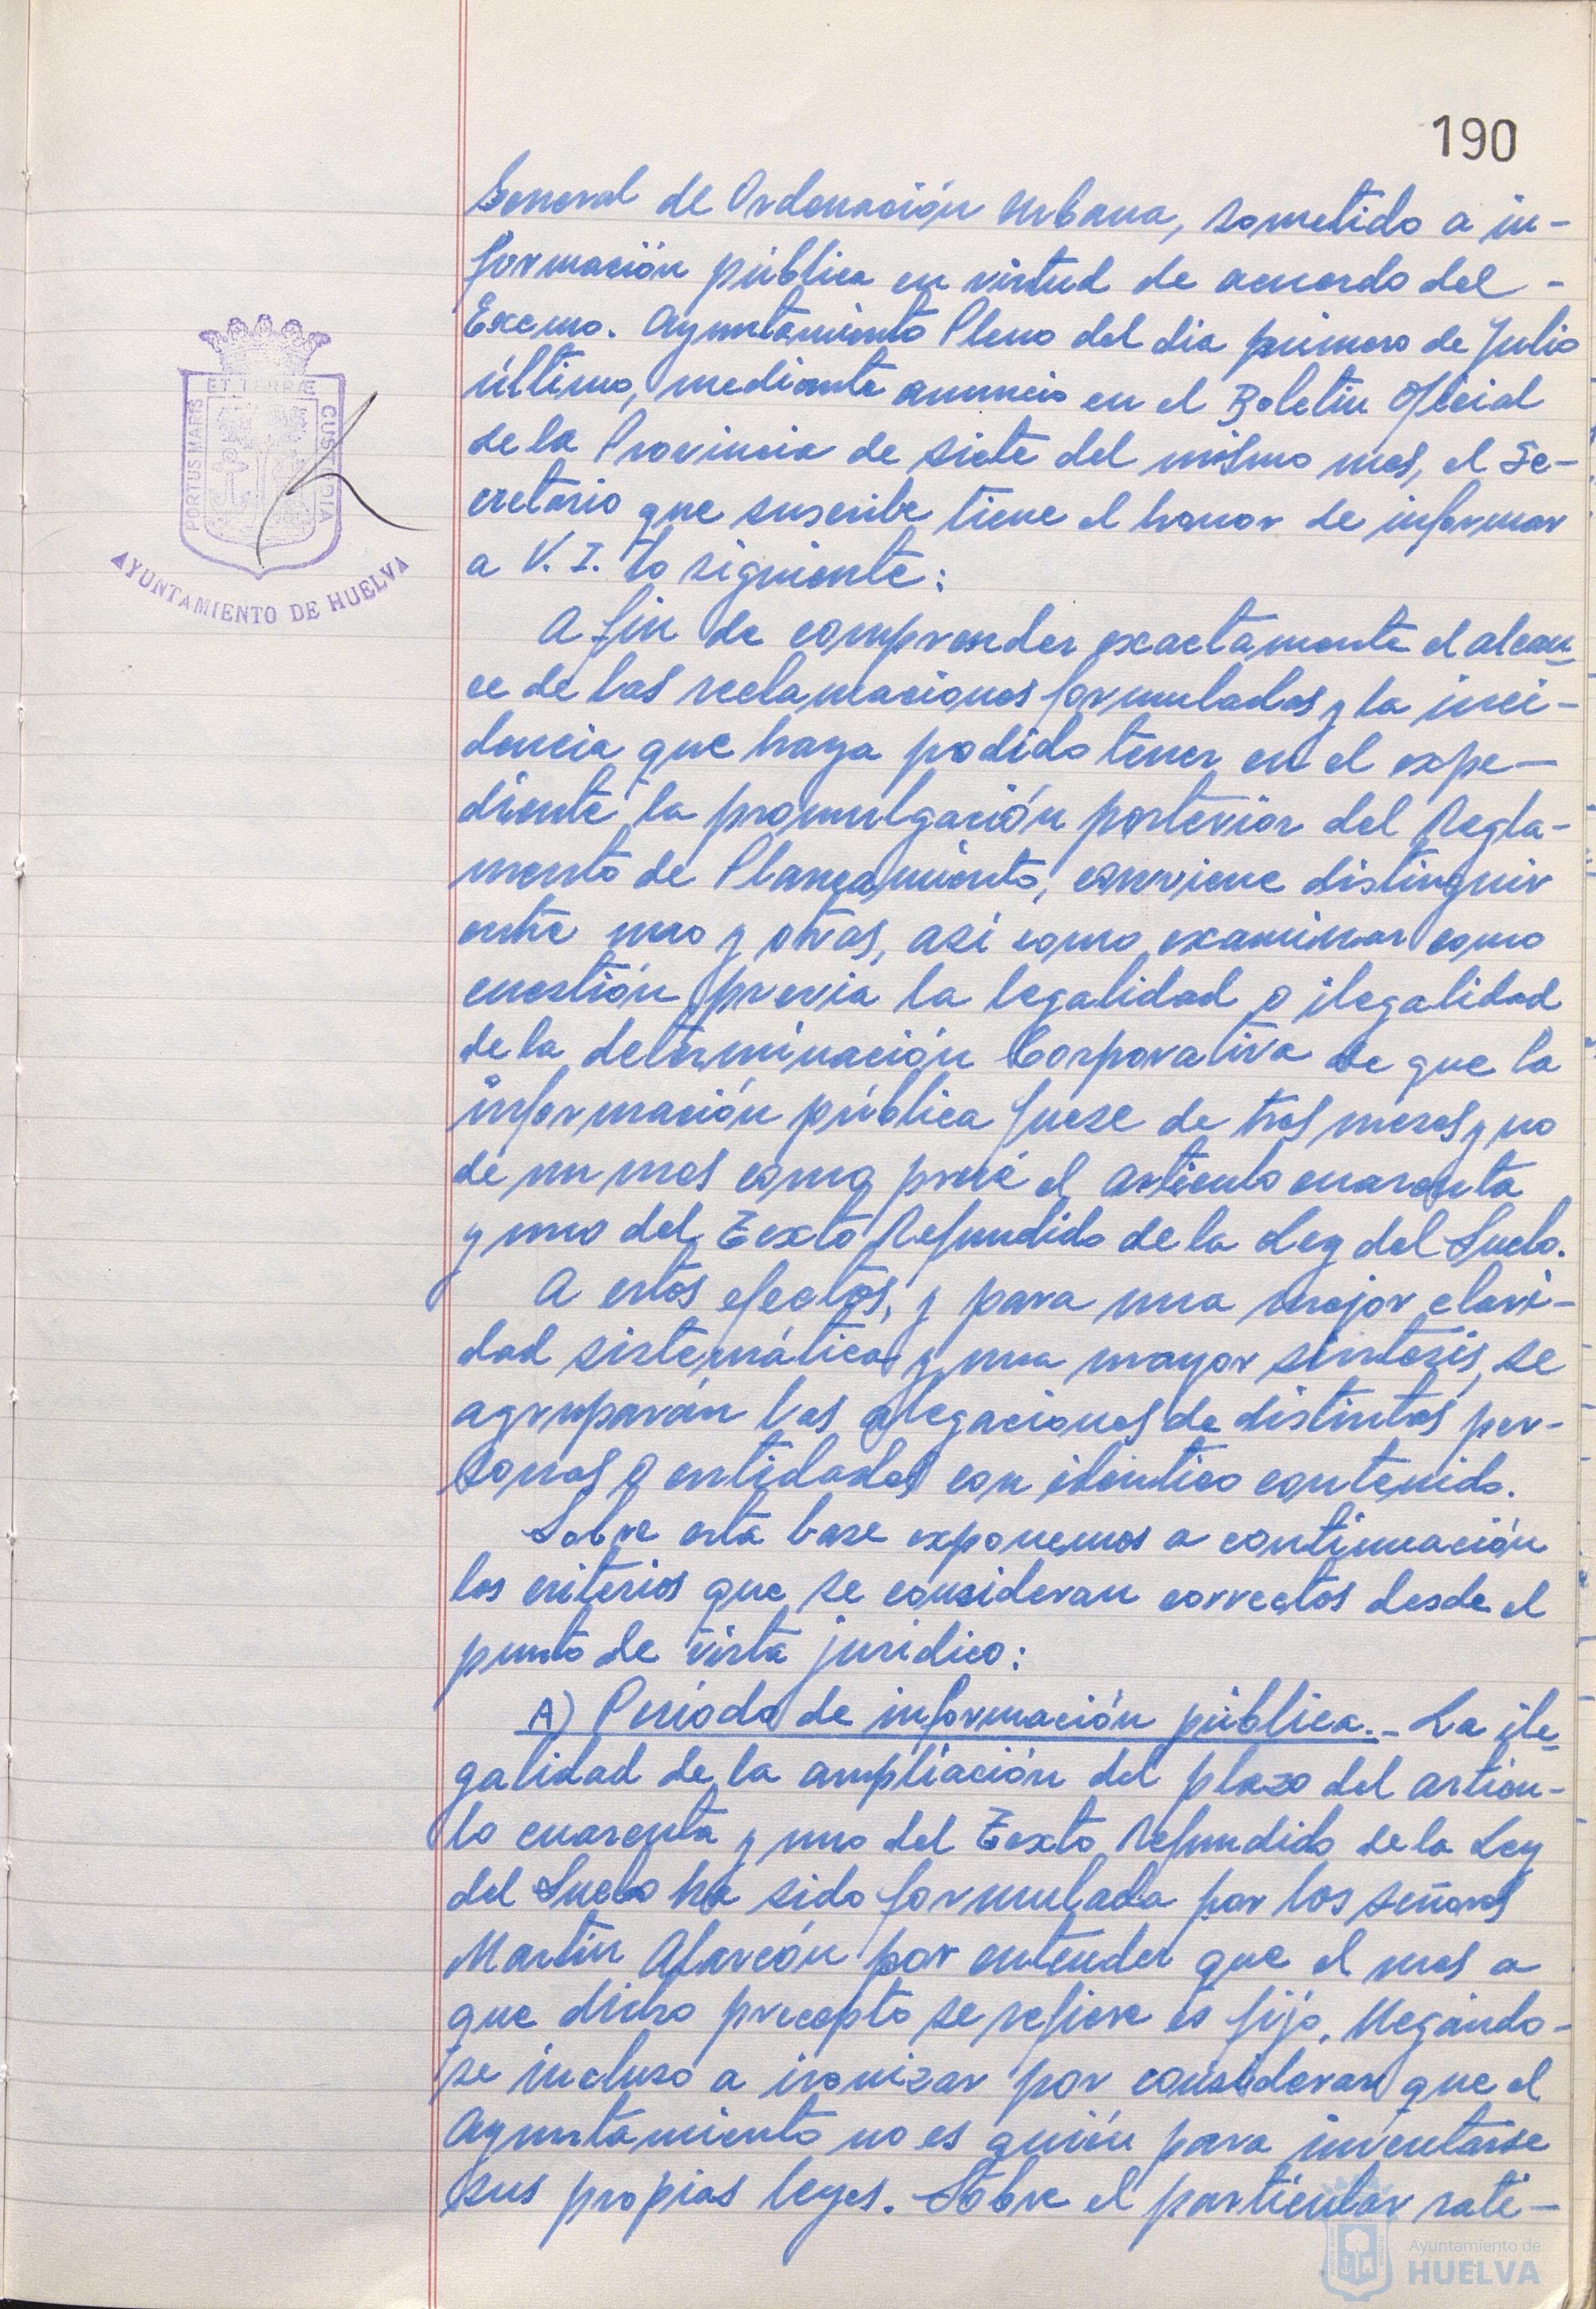 190
General de Ordenación Urbana, sometido a in-
formación pública en virtud de acuerdo del -
Excmo. Ayuntamiento Pleno del dia primero de Julio
último, mediante anuncio en el Boletin Oficial
de la Provincia de siete del mismo mes, el Se-
cretario que suscribe tiene el honor de informar
a V. I. lo siguiente:
A fin de comprender exactamente el alcan-
ce de las reclamaciones formuladas y la inci-
dencia que haya podido tener en el expe-
diente la promulgación posterior del Regla-
mento de Planeamiento, conviene distinguir
entre uno y otras, asi como examinar como
cuestión previa la legalidad o ilegalidad
de la determinación Corporativa de que la
información pública fuese de tres meses y no
de un mes como prevé el articulo cuarenta
y uno del Texto Refundido de la Ley del Suelo.
A estos efectos, y para una mejor clari-
dad sistemática y una mayor sintesis, se
agruparán las alegaciones de distintas per-
sonas o entidades con idéntico contenido.
Sobre esta base exponemos a continuación
los criterios que se consideran correctos desde el
punto de vista juridico:
A) Periodo de información pública.- La ile-
galidad de la ampliación del plazo del articu-
lo cuarenta y uno del Texto Refundido de la Ley
del Suelo ha sido formulada por los señores
Martin Alarcón por entender que el mes a
que dicho precepto se refiere es fijo, llegándo-
se incluso a ironizar por considerar que el
Ayuntamiento no es quién para inventarse
sus propias leyes. Sobre el particular rati-
ET TERRÆ
PORTUS MARIS
CUSTODIA
AYUNTAMIENTO DE HUELVA
Ayuntamiento de
HUELVA